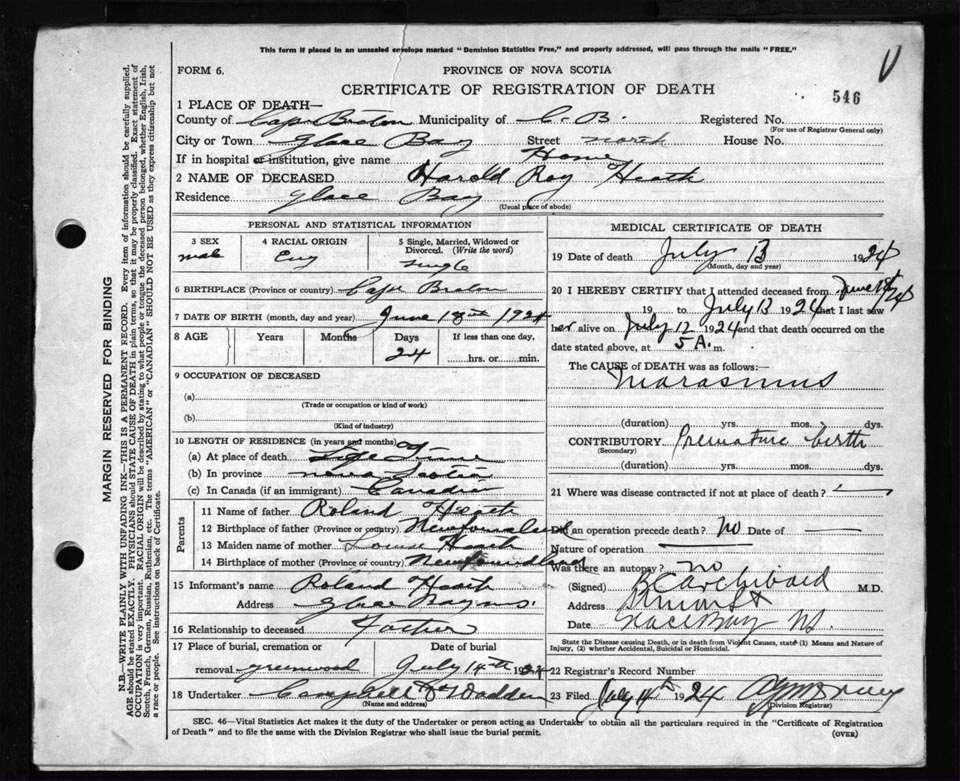 This form if placed in an unsealed envelope marked "Dominion Statistics Free," and properly addressed, will pass through the mails "FREE."
FORM 6.
PROVINCE OF NOVA SCOTIA
CERTIFICATE OF REGISTRATION OF DEATH
546
1 PLACE OF DEATH—
County of Cape Breton Municipality of C. B. Registered No.
(For use of Registrar General only)
City or Town Glace Bay Street north House No.
If in hospital or institution, give name Home
2 NAME OF DECEASED Harold Roy Heath
Residence Glace Bay
(Usual place of abode)
PERSONAL AND STATISTICAL INFORMATION
3 SEX male
4 RACIAL ORIGIN Eng
5 Single, Married, Widowed or Divorced. (Write the word) single
6 BIRTHPLACE (Province or country) Cape Breton
7 DATE OF BIRTH (month, day and year) June 1924
8 AGE Years Months Days 24 If less than one day, hrs. or min.
9 OCCUPATION OF DECEASED
(a)
(Trade or occupation or kind of work)
(b)
(Kind of industry)
10 LENGTH OF RESIDENCE (in years and months)
(a) At place of death Life Time
(b) In province nova Scotia
(c) In Canada (if an immigrant) Canadian
Parents
11 Name of father Roland Heath
12 Birthplace of father (Province or country) Newfoundland
13 Maiden name of mother Louise Heath
14 Birthplace of mother (Province or country) Newfoundland
15 Informant's name Roland Heath
Address Glace Bay ns.
16 Relationship to deceased Father
17 Place of burial, cremation or removal greenwood
Date of burial July 14th 1924
18 Undertaker Campbell & McFadden
(Name and address)
MEDICAL CERTIFICATE OF DEATH
19 Date of death July 13 1924
(Month, day and year)
20 I HEREBY CERTIFY that I attended deceased from June
19 to July 13 1924 that I last saw
her alive on July 12 1924 and that death occurred on
date stated above, at 5 A. m.
The CAUSE of DEATH was as follows:
marasmus
(duration) yrs. mos. dys.
CONTRIBUTORY Premature birth
(Secondary)
(duration) yrs. mos. dys.
21 Where was disease contracted if not at place of death?
Did an operation precede death? no Date of
Nature of operation
Was there an autopsy? no
(Signed) Archibald M.D.
Address
Date Glace Bay NS
State the Disease causing Death, or in death from Violent Causes, state (1) Means and Nature of
Injury, (2) whether Accidental, Suicidal or Homicidal.
22 Registrar's Record Number
23 Filed July 14th 1924
(Division Registrar)
SEC. 46—Vital Statistics Act makes it the duty of the Undertaker or person acting as Undertaker to obtain all the particulars required in the "Certificate of Registration
of Death" and to file the same with the Division Registrar who shall issue the burial permit.
(OVER)
MARGIN RESERVED FOR BINDING
N.B.—WRITE PLAINLY WITH UNFADING INK—THIS IS A PERMANENT RECORD. Every item of information should be carefully supplied.
AGE should be stated EXACTLY. PHYSICIANS should STATE CAUSE OF DEATH in plain terms, so that it may be properly classified. Exact statement of
OCCUPATION is very important. RACIAL ORIGIN will be described by stating to what people or tongue the deceased person belonged, whether English, Irish,
Scotch, French, German, Russian, Ruthenian, etc. The terms "AMERICAN" or "CANADIAN" SHOULD NOT BE USED as they express citizenship but not
a race or people. See instructions on back of Certificate.